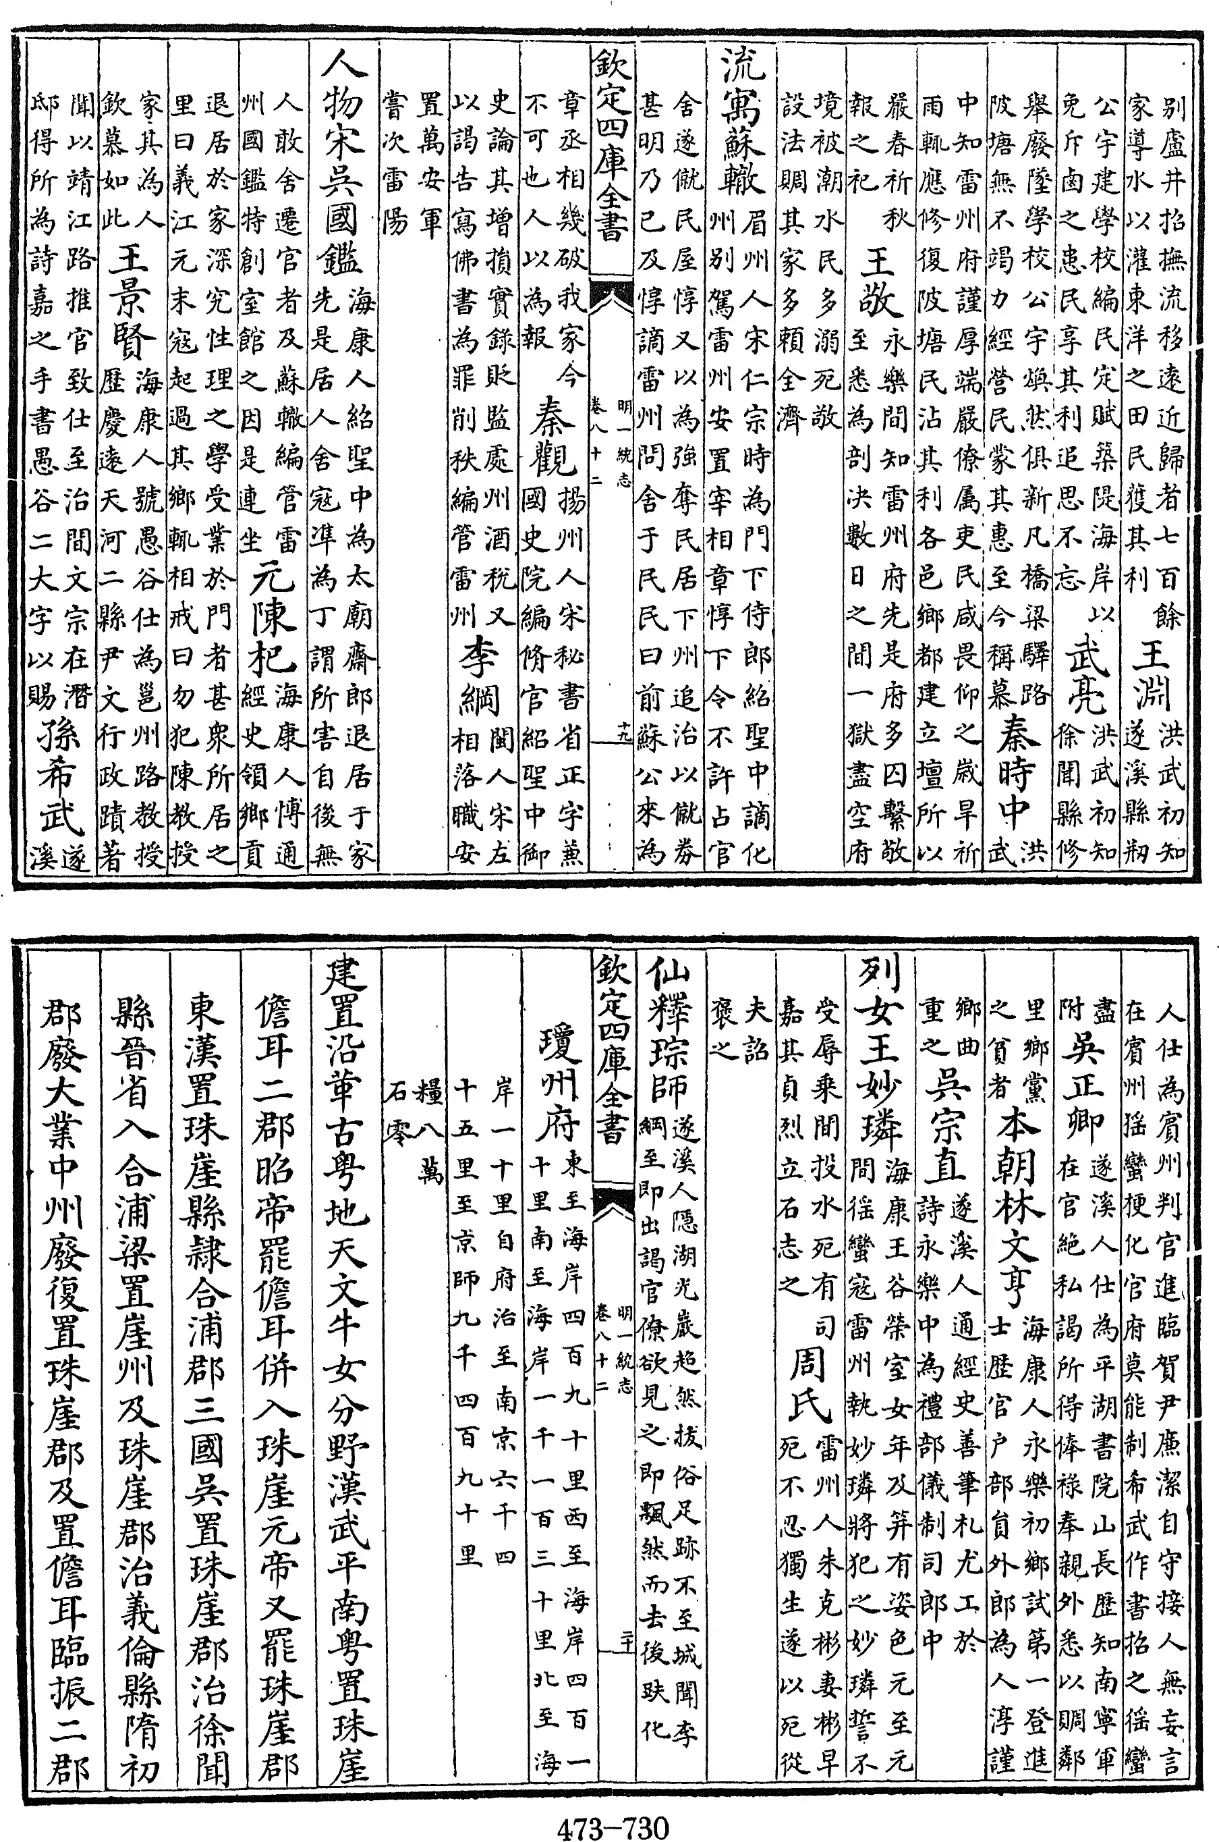 别盧井招撫流移遠近歸者七百餘家導水以灌東洋之田民獲其利王淵洪武初知遂溪縣刱
公宇建學校編民定賦築隄海岸以免斥鹵之患民享其利追思不忘武亮洪武初知徐聞縣修
舉廢墜學校公宇煥然俱新凡橋梁驛路陂塘無不竭力經營民蒙其惠至今稱慕秦時中洪武
中知雷州府謹厚端嚴僚属吏民咸畏仰之歲旱祈雨輒應修復陂塘民沾其利各邑鄉都建立壇所以
嚴春祈秋報之祀王敬永樂間知雷州府先是府多囚繫敬至悉為剖决數日之間一獄盡空府
境被潮水民多溺死敬設法賙其家多頼全濟
流寓蘇轍眉州人宋仁宗時為門下侍郎紹聖中謫化州别駕雷州安置宰相章惇下令不許占官
舍遂僦民屋惇又以為強奪民居下州追治以僦券甚明乃已及惇謫雷州問舍于民民曰前蘇公來為
欽定四庫全書 明一統志卷八十二 十九
章丞相幾破我家今不可也人以為報秦觀揚州人宋秘書省正字兼國史院編脩官紹聖中御
史論其增損實錄貶監處州酒稅又以謁告寫佛書為罪削秩編管雷州李綱閩人宋左相落職安
置萬安軍嘗次雷陽
人物宋吳國鑑海康人紹聖中為太廟齋郎退居于家先是居人舍寇凖為丁謂所害自後無
人敢舍遷官者及蘇轍編管雷州國鑑特創室館之因是連坐元陳杞海康人博通經史領鄉貢
退居於家深究性理之學受業於門者甚衆所居之里曰義江元末寇起過其鄉輒相戒曰勿犯陳教授
家其為人欽慕如此王景賢海康人號愚谷仕為邕州路教授歷慶遠天河二縣尹文行政蹟著
聞以靖江路推官致仕至治間文宗在潛邸得所為詩嘉之手書愚谷二大字以賜孫希武遂溪
人仕為賓州判官進臨賀尹廉潔自守接人無妄言在賓州猺蠻梗化官府莫能制希武作書招之徭蠻
盡附吳正卿遂溪人仕為平湖書院山長歷知南寧軍在官絕私謁所得俸祿奉親外悉以賙鄰
里鄉黨之貧者本朝林文亨海康人永樂初鄉試第一登進士歷官户部員外郎為人淳謹
鄉曲重之吳宗直遂溪人通經史善筆札尤工於詩永樂中為禮部儀制司郎中
列女王妙璘海康王谷榮室女年及笄有姿色元至元間徭蠻寇雷州執妙璘將犯之妙璘誓不
受辱乘間投水死有司嘉其貞烈立石志之周氏雷州人朱克彬妻彬早死不忍獨生遂以死從
夫詔褒之
仙釋琮師遂溪人隠湖光巖超然拔俗足跡不至城聞李綱至即出謁官僚欲見之即飄然而去後趺化
欽定四庫全書 明一統志卷八十二 二十
瓊州府東至海岸四百九十里西至海岸四百一十里南至海岸一千一百三十里北至海
岸一十里自府治至南京六千四十五里至京師九千四百九十里
糧八萬石零
建置沿革古粤地天文牛女分野漢武平南粤置珠崖
儋耳二郡昭帝罷儋耳併入珠崖元帝又罷珠崖郡
東漢置珠崖縣隸合浦郡三國吳置珠崖郡治徐聞
縣晉省入合浦梁置崖州及珠崖郡治義倫縣隋初
郡廢大業中州廢復置珠崖郡及置儋耳臨振二郡
473-730